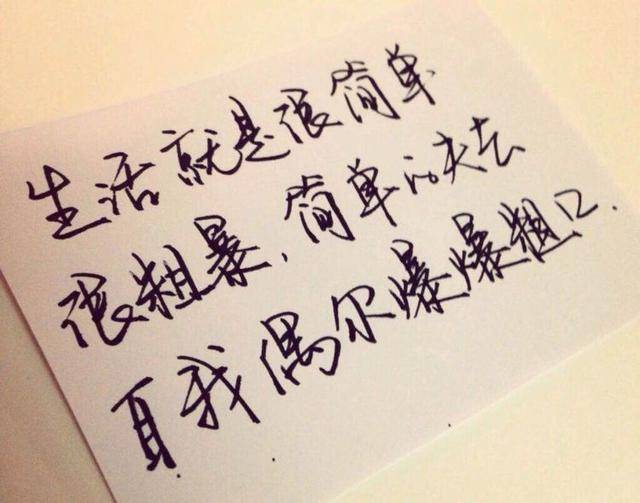 生活就是很简单
很粗暴,简单的失去
自我偶尔爆爆粗口.